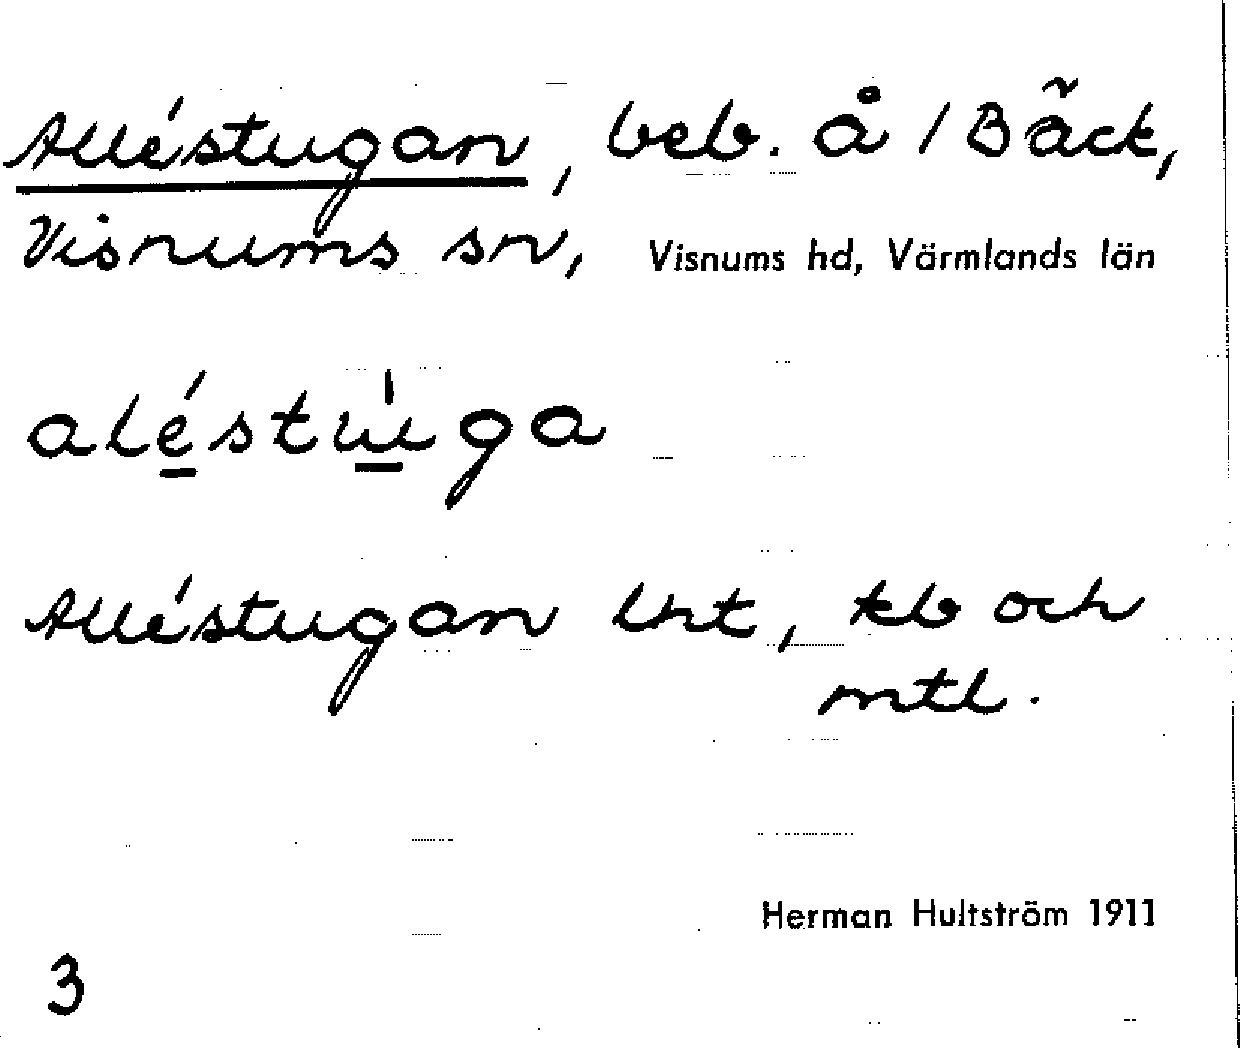 Alléstugan, beb. å 1 Bäck,
Visnums sn, Visnums hd, Värmlands län
aléstu̍ga
Alléstugan lht, kb och
mtl.
Herman Hultström 1911
3